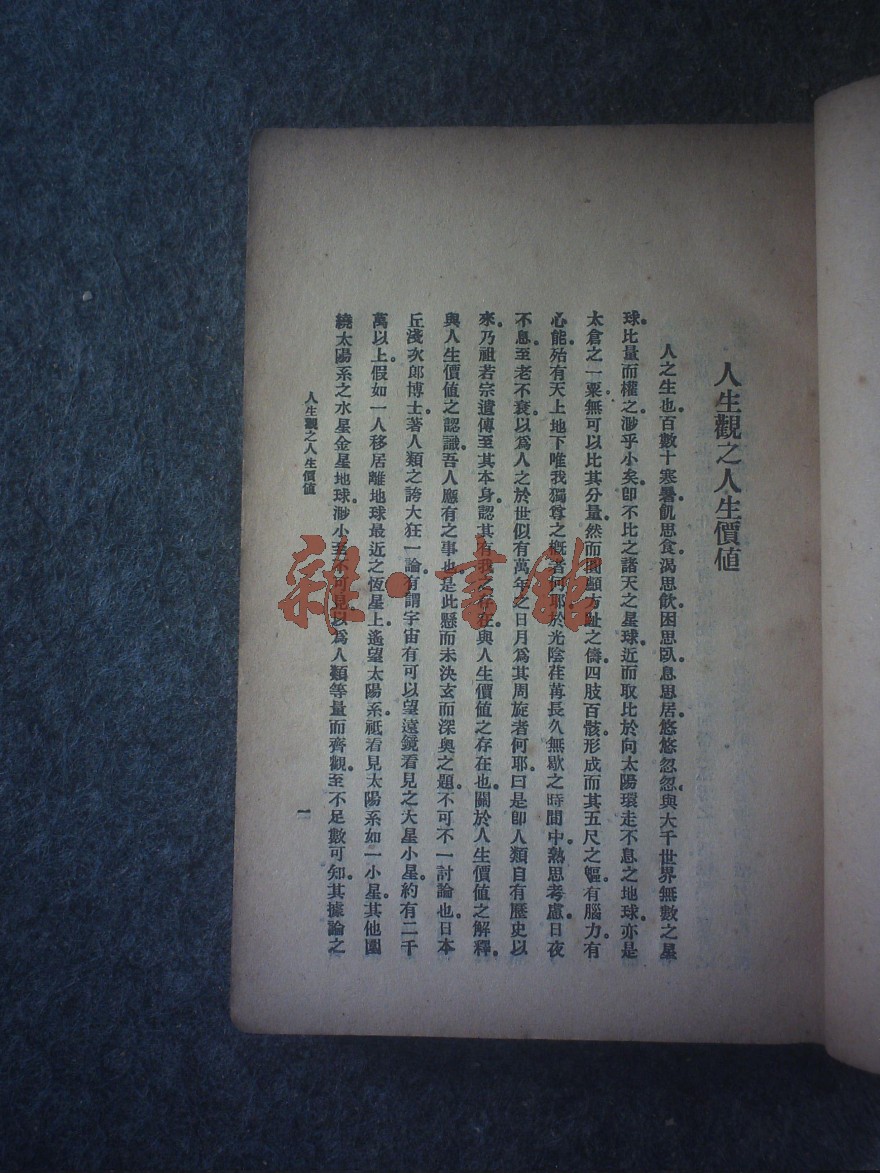 人生觀之人生價値
人之生也。百數十寒暑。飢思食。渴思飮。困思臥。息思居。悠悠忽忽。與大千世界無數之星
球。比量而權之。渺乎小矣。卽不比之諸天之星球。近而取比於向太陽環走不息之地球。亦是
太倉之一粟。無可以比其分量。然而圓顱方趾之儔。四肢百骸。形成而其五尺之軀。有腦力。有
心能。殆有天上地下唯我獨尊之槪者。何耶。於光陰荏苒長久無歇之時間中。熱思考慮。日夜
不息。至老不衰。以爲人之於世。似有萬年之日月爲其周旋者。何耶。曰。是卽人類自有歷史以
來。乃祖若宗。遺傳至其本身。認其有我之存在。與人生價値之存在也。關於人生價値之解釋。
與人生價値之認識。吾人應有之事也。是此懸而未決玄而深奧之題。不可不一討論也。日本
丘淺次郎博士。著人類之誇大狂一論。有謂宇宙有可以望遠鏡看見之大星小星。約有二千
萬以上。假如一人移居離地球最近之恆星上。遙望太陽系。祇看見太陽系如一小星。其他圍
繞太陽系之水星金星地球。渺小至不可見。以爲人類等量而齊觀。至不足數可知。其據論之
人生觀之人生價値
一
雜·書館